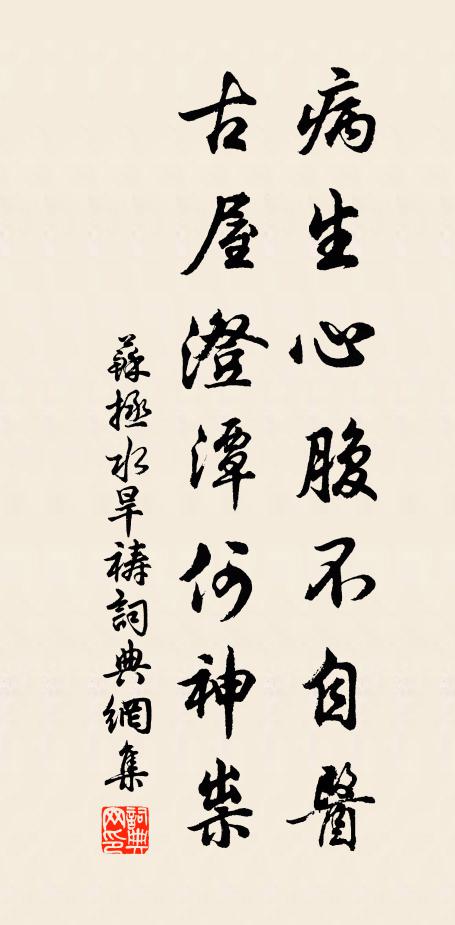 病生心腹不自醫
古屋澄潭何神祟
蘇拯水旱禱詞典網集
詞典网印